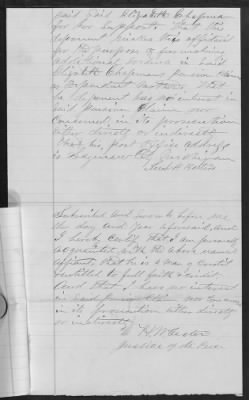 said Elizabeth Chapman
for her support. That this
deponent makes this affidavit
for the purpose of furnishing
additional evidence in said
Elizabeth Chapmans pension claim
as Dependent Mother. That
he deponent has no interest in
said Pension Claim nor
concerned in its prosecution
either directly or indirectly
That his Post Office address
is
Subscribed and sworn to before me
the day and year aforesaid. And
I hereby certify that I am personally
acquainted with the above named
affiant, that he is a man of credit
entitled to full faith & credit
And that I have no interest
in said Pension Claim nor concern
in its prosecution either directly
or indirectly
Justice of the Peace